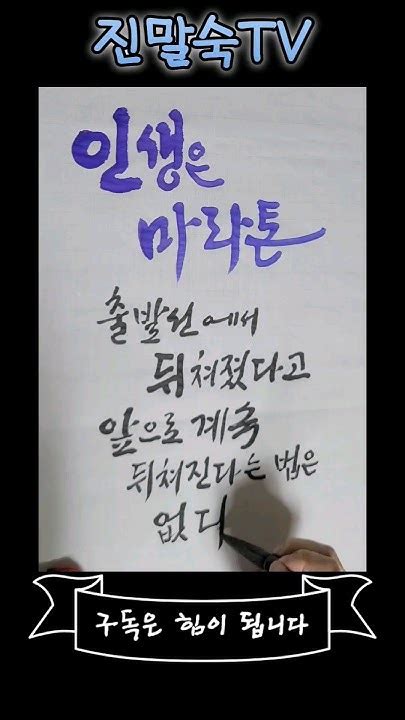 진말숙TV
인생은
마라톤
출발선에서
뒤쳐졌다고
앞으로 계속
뒤쳐진다는 법은
없다
구독은 힘이 됩니다